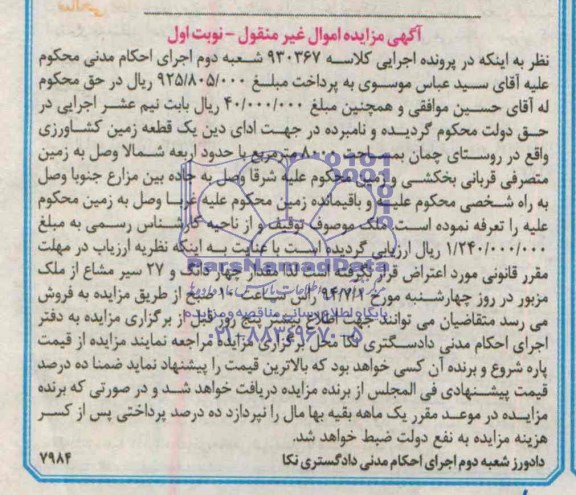 آگهی مزایده اموال غیر منقول - نوبت اول
نظر به اینکه در پرونده اجرایی کلاسه ۹۳۰۳۶۷ شعبه دوم اجرای احکام مدنی محکوم
علیه آقای سید عباس موسوی به پرداخت مبلغ ۹۲۵/۸۰۵/۰۰۰ ریال در حق محکوم
له آقای حسین موافقی و همچنین مبلغ ۴۰/۰۰۰/۰۰۰ ریال بابت نیم عشر اجرایی در
حق دولت محکوم گردیده و نامبرده در جهت ادای دین یک قطعه زمین کشاورزی
واقع در روستای چمان بمساحت ۸۰۰۰ مترمربع با حدود اربعه شمالا وصل به زمین
متصرفی قربانی بخکشی و زمین محکوم علیه شرقا وصل به جاده بین مزارع جنوبا وصل
به راه شخصی محکوم علیه و باقیمانده زمین محکوم علیه غربا وصل به زمین محکوم
علیه را تعرفه نموده است. ملک موصوف توقیف و از ناحیه کارشناس رسمی به مبلغ
۱/۲۴۰/۰۰۰/۰۰۰ ریال ارزیابی گردیده است با عنایت به اینکه نظریه ارزیاب در مهلت
مقرر قانونی مورد اعتراض قرار نگرفته است لذا مقدار چهار دانگ و ۲۷ سیر مشاع از ملک
مزبور در روز چهارشنبه مورخ ۹۴/۷/۱ راس ساعت ۱۰ صبح از طریق مزایده به فروش
می رسد متقاضیان می توانند جهت اطلاع بیشتر پنج روز قبل از برگزاری مزایده به دفتر
اجرای احکام مدنی دادگستری نکا محل برگزاری مزایده مراجعه نمایند مزایده از قیمت
پاره شروع و برنده آن کسی خواهد بود که بالاترین قیمت را پیشنهاد نماید ضمنا ده درصد
قیمت پیشنهادی فی المجلس از برنده مزایده دریافت خواهد شد و در صورتی که برنده
مزایده در موعد مقرر یک ماهه بقیه بها مال را نپردازد ده درصد پرداختی پس از کسر
هزینه مزایده به نفع دولت ضبط خواهد شد.
دادورز شعبه دوم اجرای احکام مدنی دادگستری نکا
۷۹۸۴
ParsNamadData
پایگاه اطلاع رسانی مناقصه و مزایده